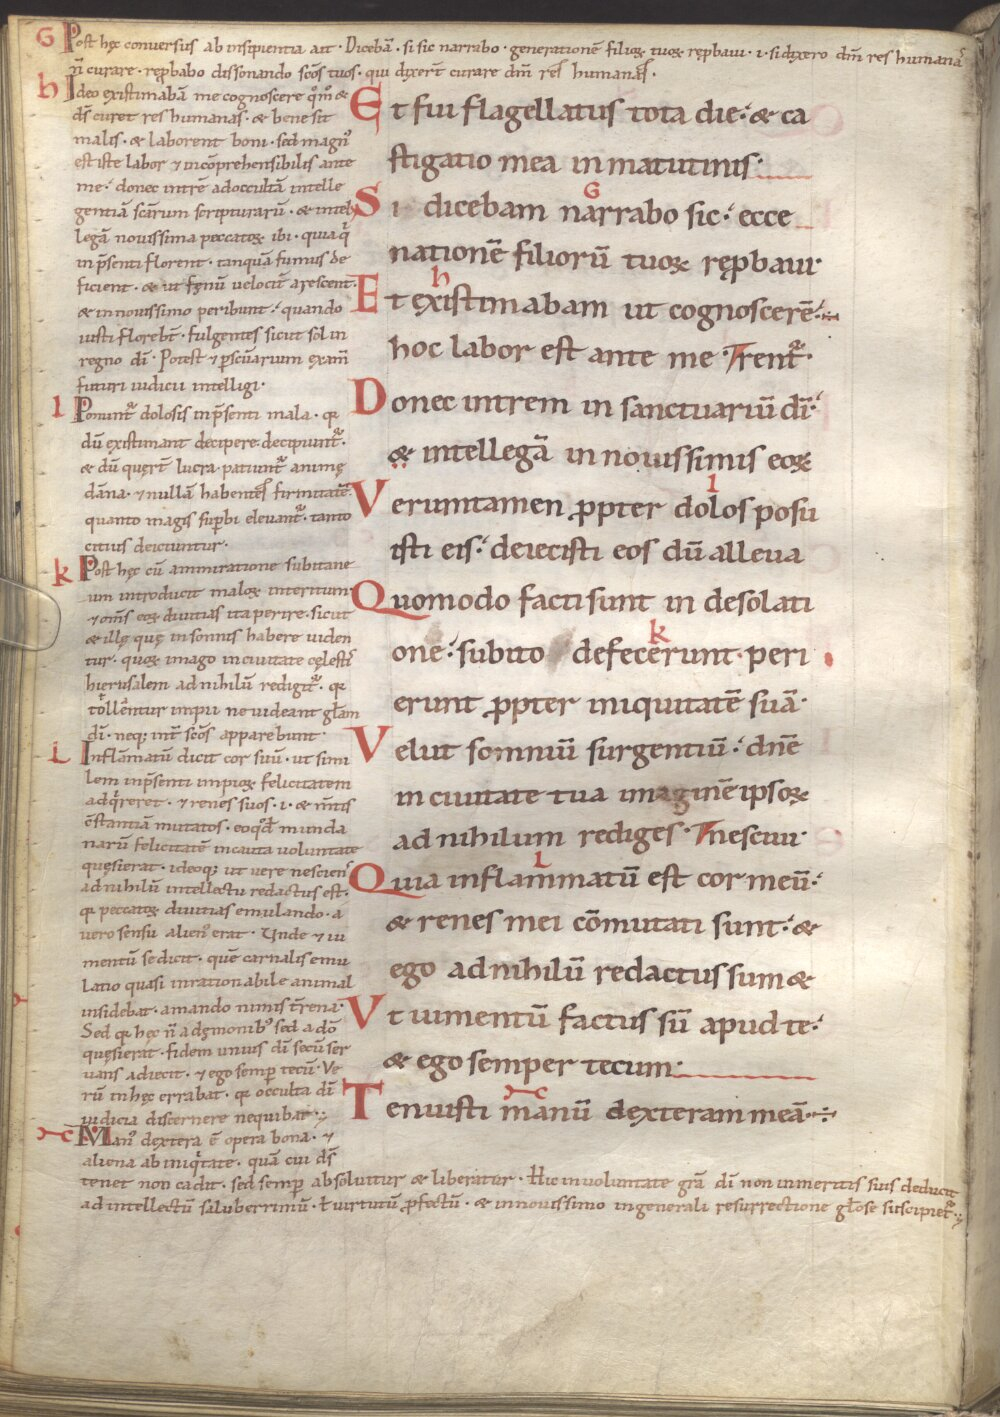 G Post hęc conversus ab insipientia ait · Dicebā · si sic narrabo · generationē filioꝝ tuoꝝ rępbavi · i · si dixero dm̄ res humanas
n̄ curare · rępbabo dissonando scōs tuos · qui dixert̄ curare dm̄ res humanas ·
h Ideo existimabā me cognoscere qm̄o &
ds̄ curet res humanas · & bene sit
malis · & laborent boni · sed magn᾽
est iste labor ⁊ incōprehensibilis ante
me · donec intrē ad occultā intelle
gentiā scārum scripturarū · & intel
legā novissima peccatoꝝ ibi · quia q̄
in p̄senti florent · tanquā fumus de
ficient · & ut fęnū velocit̄ arescent ·
& in novissimo peribunt · quando
iusti florebt̄ · fulgentes sicut sol in
regno dī · Potest ⁊ p scūarum exam̄
futuri iudicii intelligi ·
l Ponunt̄ dolosis in p̄senti mala · qꝛ
dū existimant decipere decipiunt̄ ·
& dū quęrt̄ lucra patiunt̄ animę
dāna · ⁊ nullā habentes firmitatē
quanto magis supbi elevant̄ · tanto
citius deiciuntur ·
k Post hęc cū ammiratione subitane
um introducit maloꝝ interitum
⁊ om̄s eoꝝ divitias ita perire · sicut
& illę quę in somnis habere viden
tur · quoꝝ imago in civitate cęlesti
hierusalem ad nihilū redigit̄ · qꝛ
tollentur impii ne videant glām
dī · neq; int̄ scōs apparebunt ·
i Inflāmatū dicit cor suū · ut simi
lem in p̄senti impioꝝ felicitatem
adq̄reret · ⁊ renes suos · i · & m̄tis
c̄stantiā mutatos · eo qd̄ munda
narū felicitatē incauta voluntate
quęsierat · ideoq; ut vere nescien᾽
ad nihilū intellectu redactus est ·
qꝛ peccatoꝝ divitias emulando · a
vero sensu alien᾽ erat · Unde ⁊ iu
mentū se dicit · quē carnalis emu
latio quasi inrationabile animal
insidebat · amando nimis t̄rena ·
Sed qꝛ hęc n̄ a dęmonib᾽ sed a dō
quęsierat · fidem unius dī secū ser
vans adiecit · ⁊ ego semp̄ tecū · Ve
rū in hęc errabat · qꝛ occulta dī
iudicia discernere nequibat ·
Man᾽ dextera ē opera bona · ⁊
aliena ab iniq̄tate · quā cui ds̄
tenet non cadit · sed semp̄ absolvitur & liberatur · Hic in voluntate grā dī non inmeritis suis deducit
ad intellectū saluberrimū · ł virtutū p̱fectū · & in novissimo in generali resurrectione glōse suscipiet̄ ·
Et fui flagellatus tota die · & ca
stigatio mea in matutinis ·
G
Si dicebam narrabo sic · ecce
nationē filiorū tuoꝝ rępbavi ·
h
Et existimabam ut cognoscerē ·
hoc labor est ante me · rent̄ ·
Donec intrem in sanctuariū dī ·
& intellegā in novissimis eoꝝ
l
Verumtamen p̱pter dolos posu
isti eis · deiecisti eos dū alleva
Quomodo facti sunt in desolati
k
one · subito defecerunt · peri
erunt p̱pter iniquitatē suā ·
Velut somniū surgentiū · dn̄e
in civitate tua imaginē ipsoꝝ
ad nihilum rediges · nescivi ·
i
Quia inflammatū est cor meū ·
& renes mei cōmutati sunt · &
ego ad nihilū redactus sum &
Vt iumentū factus sū apud te ·
& ego semper tecum ·
Tenuisti manū dexteram meā ·